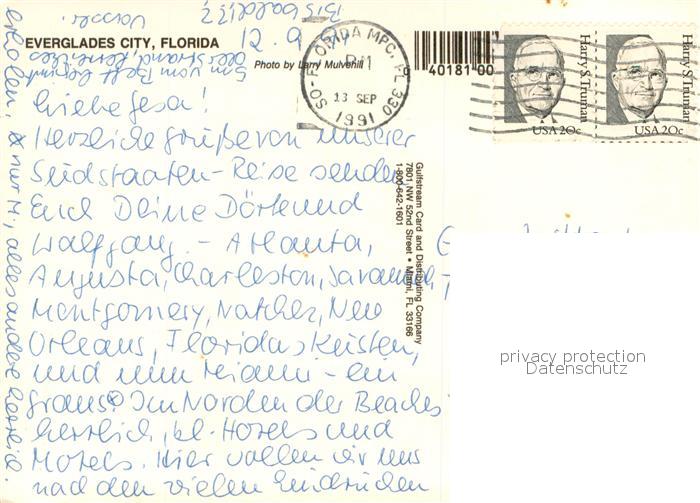 EVERGLADES CITY, FLORIDA
Photo by Larry Mulvehill
12.9.91
Liebe Gesa!
Herzliche Grüße von unserer
Südstaaten-Reise senden
Euch Deine Dörte und
Wolfgang. - Atlanta,
Augusta, Charleston, Savannah,
Montgomery, Natchez, New
Orleans, Floridas Küsten,
und nun Miami - ein
Graus⊗ Im Norden der Beaches
herrlich, kl. Hotels und
Motels. Hier wollen wir uns
nach den vielen Eindrücken
erholen, ⊗ nur M., alles andere herrlich.
5m vom Bett beginnt
der Strand, keine
Wasser.
Bis bald
SO. FLORIDA MPC, FL 330
13 SEP
1991
40181-00
Harry S Truman
USA 20c
Harry S Truman
USA 20c
Gulfstream Card and Distributing Company
7801 NW 52nd Street • Miami, FL 33166
1-800-642-1601
privacy protection
Datenschutz